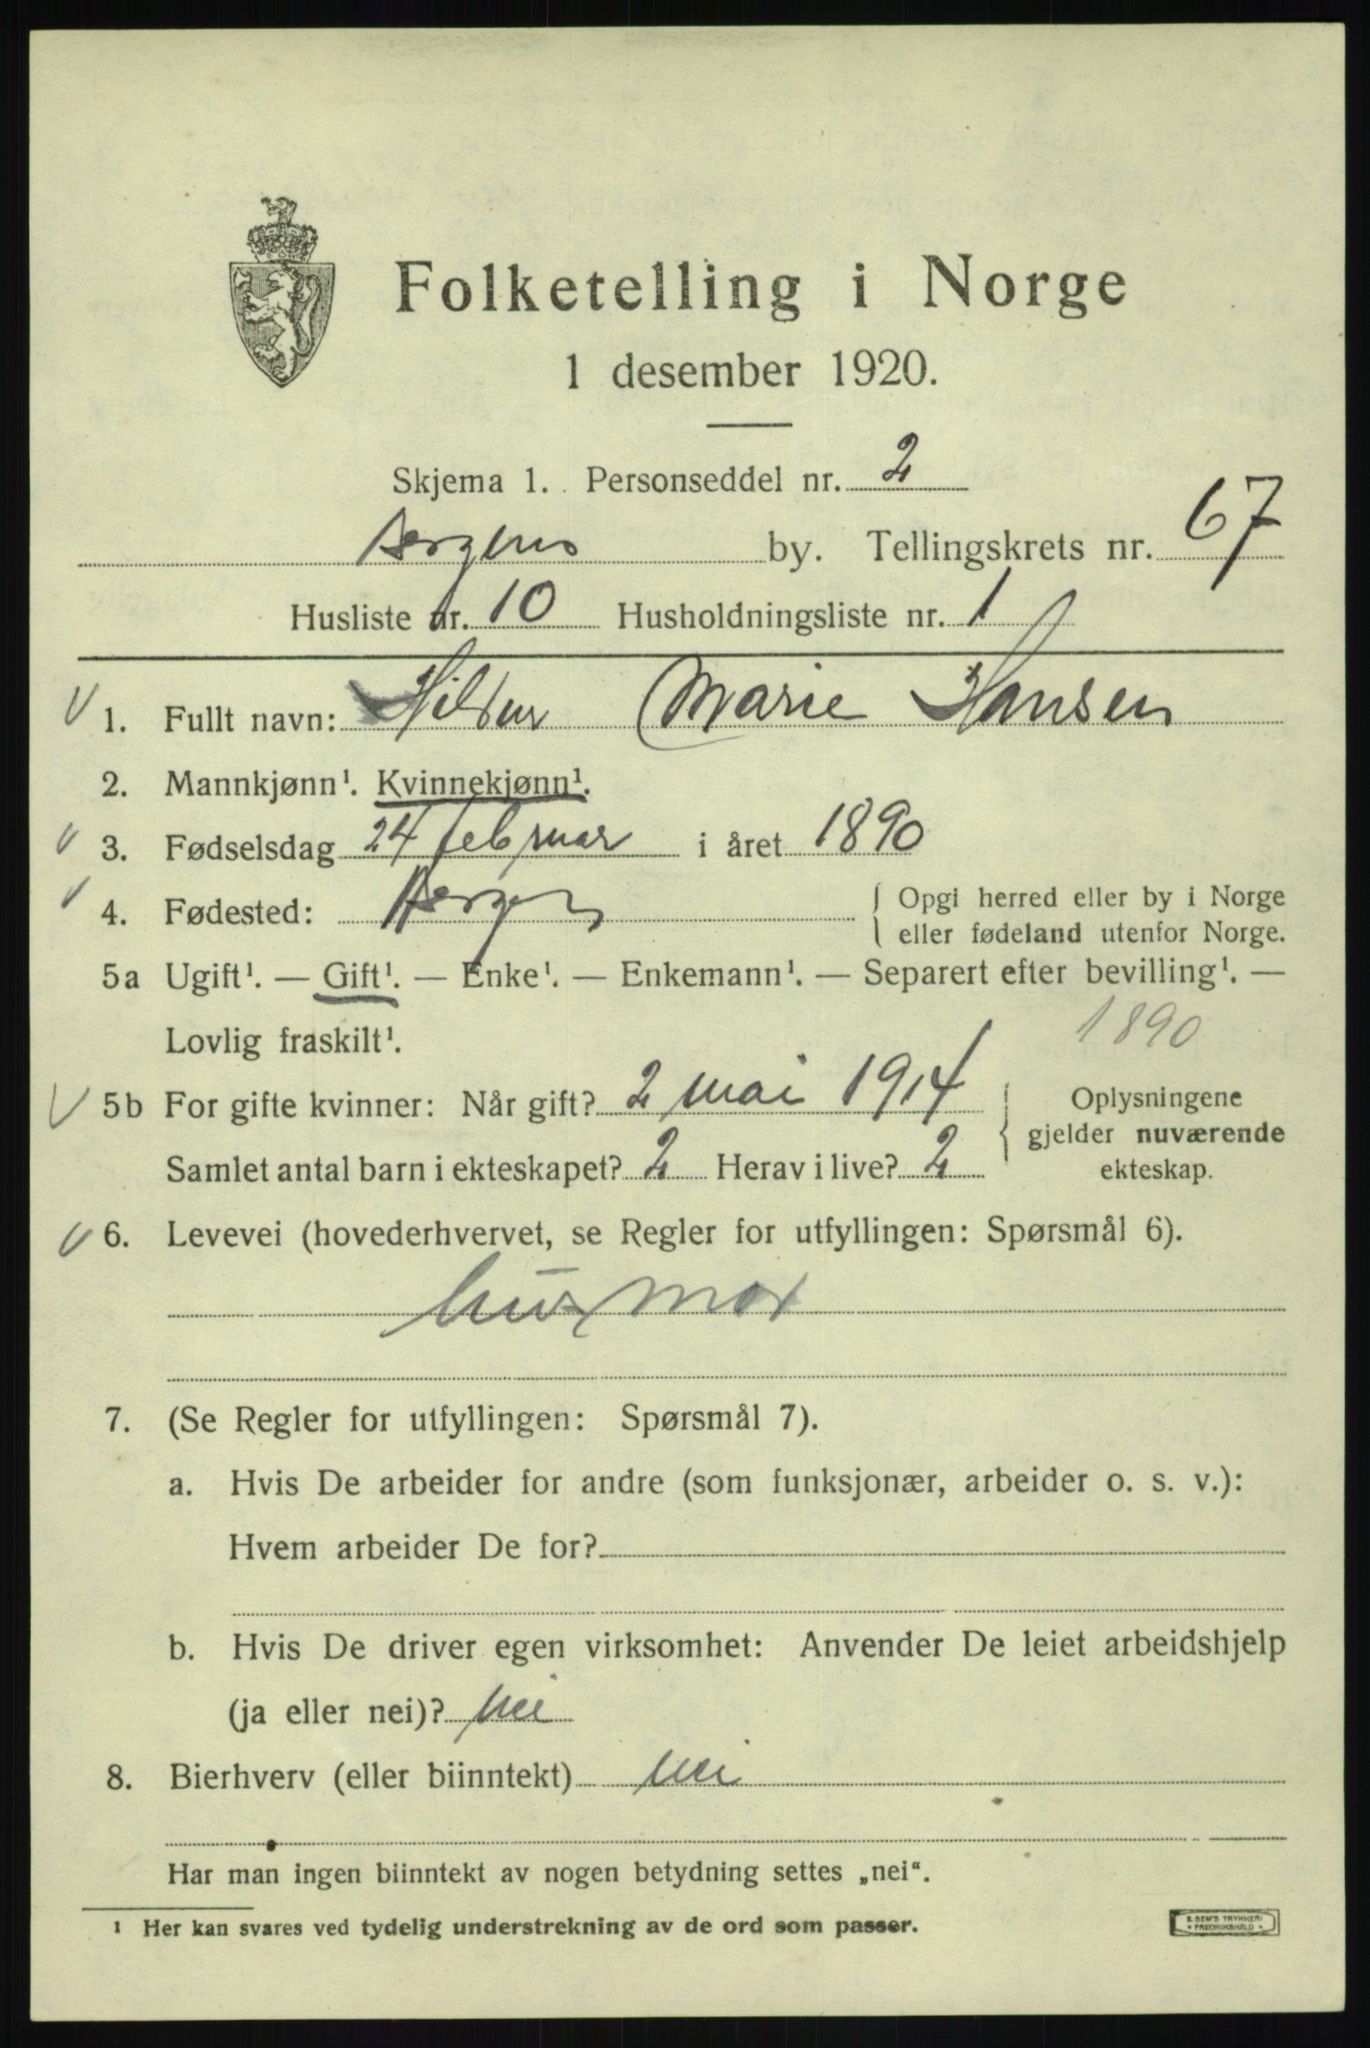 Folketelling i Norge
1 desember 1920.
Skjema 1. Personseddel nr. 2
Bergens by. Tellingskrets nr. 67
Husliste nr. 10 Husholdningsliste nr. 1
1. Fullt navn: Hildur Marie Hansen
2. Mannkjønn¹. Kvinnekjønn¹.
3. Fødselsdag 24 februar i året 1890
4. Fødested: Bergen { Opgi herred eller by i Norge
eller fødeland utenfor Norge.
5a Ugift¹. — Gift¹. — Enke¹. — Enkemann¹. — Separert efter bevilling¹. —
Lovlig fraskilt¹. 1890
5b For gifte kvinner: Når gift? 2 mai 1914
Samlet antal barn i ekteskapet? 2 Herav i live? 2
{ Oplysningene
gjelder nuværende
ekteskap.
6. Levevei (hovederhvervet, se Regler for utfyllingen: Spørsmål 6).
husmor
7. (Se Regler for utfyllingen: Spørsmål 7).
a. Hvis De arbeider for andre (som funksjonær, arbeider o. s. v.):
Hvem arbeider De for?
b. Hvis De driver egen virksomhet: Anvender De leiet arbeidshjelp
(ja eller nei)? nei
8. Bierhverv (eller biinntekt) nei
Har man ingen biinntekt av nogen betydning settes „nei“.
¹ Her kan svares ved tydelig understrekning av de ord som passer.
E. SEM'S TRYKKERI
FREDRIKSHALD